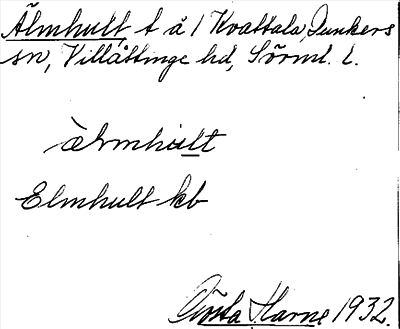 Älmhult t å 1 Kvattala, Dunkers
sn, Villåttinge hd, Sörml. l.
älmhult
Elmhult kb
Gösta Harne 1932.